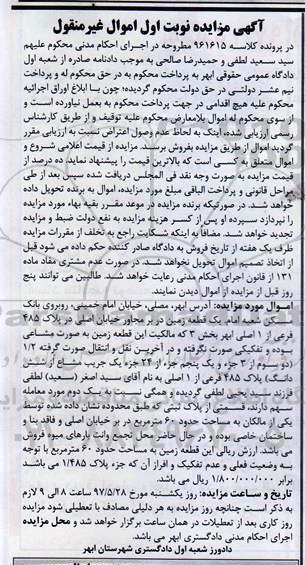 آگهی مزایده نوبت اول اموال غیرمنقول
در پرونده کلاسه ۹۶۱۶۱۵ مطروحه در اجرای احکام مدنی محکوم علیهم
سید سعید لطفی و حمیدرضا صالحی به موجب دادنامه صادره از شعبه اول
دادگاه عمومی حقوقی ابهر به پرداخت محکوم به در حق محکوم له و پرداخت
نیم عشر دولتی در حق دولت محکوم گردیده؛ چون با ابلاغ اوراق اجرائیه
محکوم علیه هیچ اقدامی در جهت پرداخت محکوم به بعمل نیاورده است و
از سوی محکوم له اموال بلامعارض محکوم علیه توقیف و از طریق کارشناس
رسمی ارزیابی شده، اینک به لحاظ عدم وصول اعتراض نسبت به ارزیابی مقرر
گردید اموال از طریق مزایده بفروش برسد. مزایده از قیمت اعلامی شروع و
اموال متعلق به کسی است که بالاترین قیمت را پیشنهاد نماید، ده درصد از
قیمت مزایده به صورت وجه نقد فی المجلس دریافت شده سپس بعد از طی
مراحل قانونی و پرداخت الباقی مبلغ مورد مزایده، اموال به برنده تحویل داده
خواهد شد. در صورتیکه برنده مزایده در موعد مقرر بقیه بهاء مورد مزایده
را نپردازد سپرده او پس از کسر هزینه مزایده به نفع دولت ضبط و مزایده
تجدید خواهد شد. مضافا به اینکه شکایت راجع به تخلف از مقررات مزایده
ظرف یک هفته از تاریخ فروش به دادگاه صادر کننده حکم داده می شود قبل
از اتخاذ تصمیم اموال تحویل نخواهد شد. در صورت عدم مشتری مفاد ماده
۱۳۱ از قانون اجرای احکام مدنی رعایت خواهد شد. طالبین می توانند پنج
روز قبل از مزایده از اموال دیدن نمایند.
اموال مورد مزایده: آدرس ابهر، مصلی، خیابان امام خمینی، روبروی بانک
سپه، شعبه امام یک قطعه زمین در بر مجاور خیابان اصلی در پلاک ۴۸۵
فرعی از ۱ اصلی ابهر بخش ۳ که مالکیت این قطعه زمین به صورت مشاعی
بوده و تفکیکی صورت نگرفته و در آخرین نقل و انتقال صورت گرفته ۱/۲
(دو سوم از ۳ جزء و یک پنجم جزء از ۲۴ جزء یک جریب مشاع از شش
دانگ) پلاک ۴۸۵ فرعی از ۱ اصلی به نام آقای سید اصغر (سعید) لطفی
فرزند سید یحیی لطفی گردیده و همگی نسبت به یک دوم مورد معامله
سهم دارند، قسمتی از پلاک ثبتی که طبق محدوده نشان داده شده توسط
یکی از مالکان به مساحت حدود ۶۰ مترمربع در بر خیابان اصلی و فاقد بنا و
ساختمان خاصی بوده و در حال حاضر محل تجمع وانت بارهای میوه فروش
می باشد. ارزش ریالی این قطعه زمین به مساحت حدود ۶۰ مترمربع با توجه
به وضعیت فعلی و عدم تفکیک و افراز آن که جزء پلاک ۱/۴۸۵ می باشد
مبلغ ۱/۸۰۰/۰۰۰/۰۰۰ ریال می باشد.
تاریخ و ساعت مزایده: روز یکشنبه مورخ ۹۷/۵/۲۸ ساعت ۸ الی ۹ لازم
به ذکر است چنانچه روز مزایده به هر دلیلی مصادف با تعطیلی شود مزایده
روز کاری بعد از تعطیلات در همان ساعت برگزار خواهد شد و محل مزایده
اجرای احکام مدنی دادگستری ابهر می باشد.
دادورز شعبه اول دادگستری شهرستان ابهر